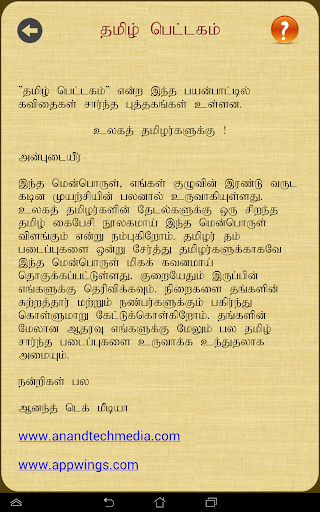 தமிழ் பெட்டகம்
?
"தமிழ் பெட்டகம்" என்ற இந்த பயன்பாட்டில்
கவிதைகள் சார்ந்த புத்தகங்கள் உள்ளன.
உலகத் தமிழர்களுக்கு !
அன்புடையீர்
இந்த மென்பொருள், எங்கள் குழுவின் இரண்டு வருட
கடின முயற்சியின் பலனால் உருவாகியுள்ளது.
உலகத் தமிழர்களின் தேடல்களுக்கு ஒரு சிறந்த
தமிழ் கைபேசி நூலகமாய் இந்த மென்பொருள்
விளங்கும் என்று நம்புகிறோம். தமிழர் தம்
படைப்புகளை ஒன்று சேர்த்து தமிழர்களுக்காகவே
இந்த மென்பொருள் மிகக் கவனமாய்
தொகுக்கப்பட்டுள்ளது. குறையேதும் இருப்பின்
எங்களுக்கு தெரிவிக்கவும். நிறைகளை தங்களின்
சுற்றத்தார் மற்றும் நண்பர்களுக்கும் பகிர்ந்து
கொள்ளுமாறு கேட்டுக்கொள்கிறோம். தங்களின்
மேலான ஆதரவு எங்களுக்கு மேலும் பல தமிழ்
சார்ந்த படைப்புகளை உருவாக்க உந்துதலாக
அமையும்.
நன்றிகள் பல
ஆனந்த் டெக் மீடியா
www.anandtechmedia.com
www.appwings.com